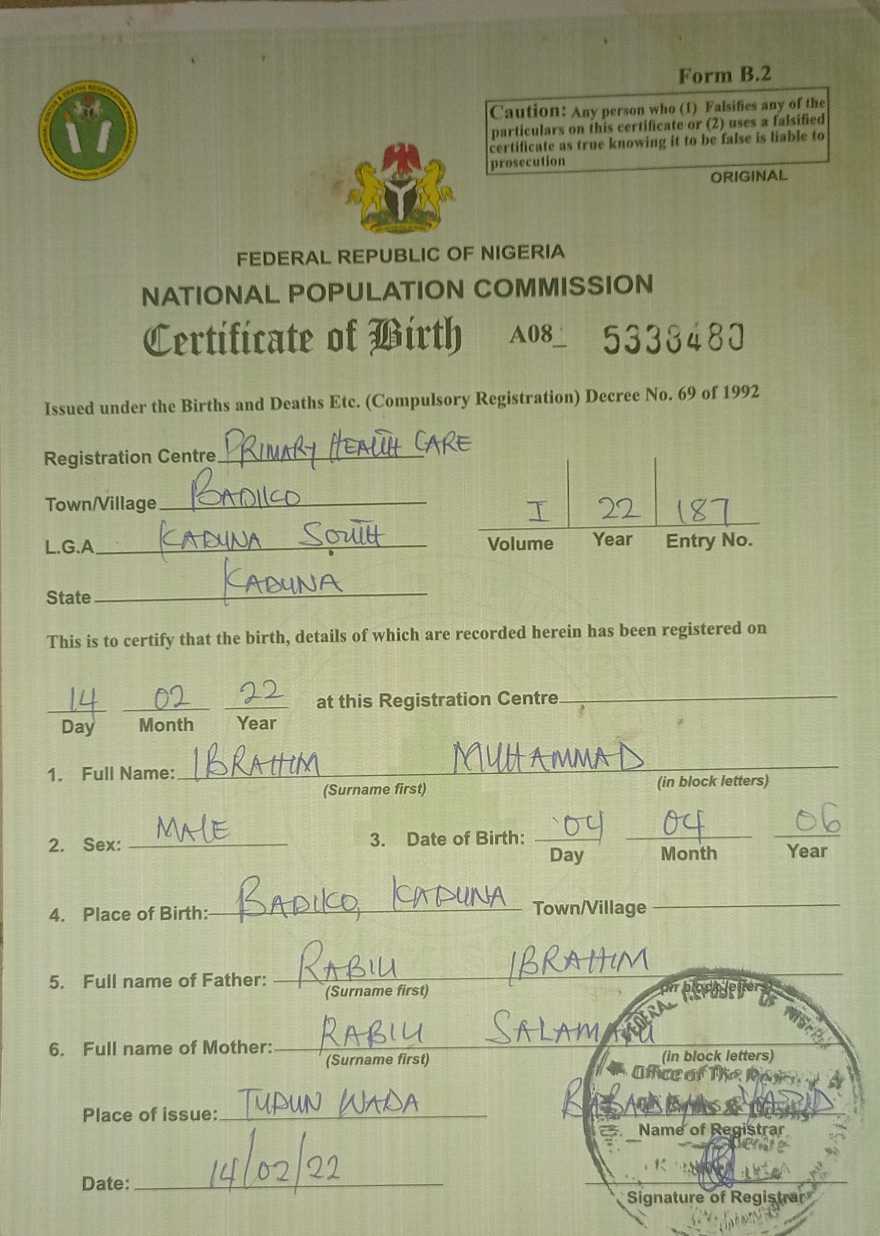 Form B.2
Caution: Any person who (1) Falsifies any of the
particulars on this certificate or (2) uses a falsified
certificate as true knowing it to be false is liable to
prosecution
ORIGINAL
FEDERAL REPUBLIC OF NIGERIA
NATIONAL POPULATION COMMISSION
Certificate of Birth A08_ 5338480
Issued under the Births and Deaths Etc. (Compulsory Registration) Decree No. 69 of 1992
Registration Centre PRIMARY HEALTH CARE
Town/Village BADIKO
L.G.A KADUNA SOUTH
I 22 187
Volume Year Entry No.
State KADUNA
This is to certify that the birth, details of which are recorded herein has been registered on
14 02 22 at this Registration Centre
Day Month Year
1. Full Name: IBRAHIM MUHAMMAD
(Surname first) (in block letters)
2. Sex: MALE 3. Date of Birth: 04 04 06
Day Month Year
4. Place of Birth: BADIKO, KADUNA Town/Village
5. Full name of Father: RABIU IBRAHIM
(Surname first) (in block letters)
6. Full name of Mother: RABIU SALAMATU
(Surname first) (in block letters)
Place of issue: TUDUN WADA
Name of Registrar
Date: 14/02/22
Signature of Registrar
FEDERAL REPUBLIC OF
Office of The